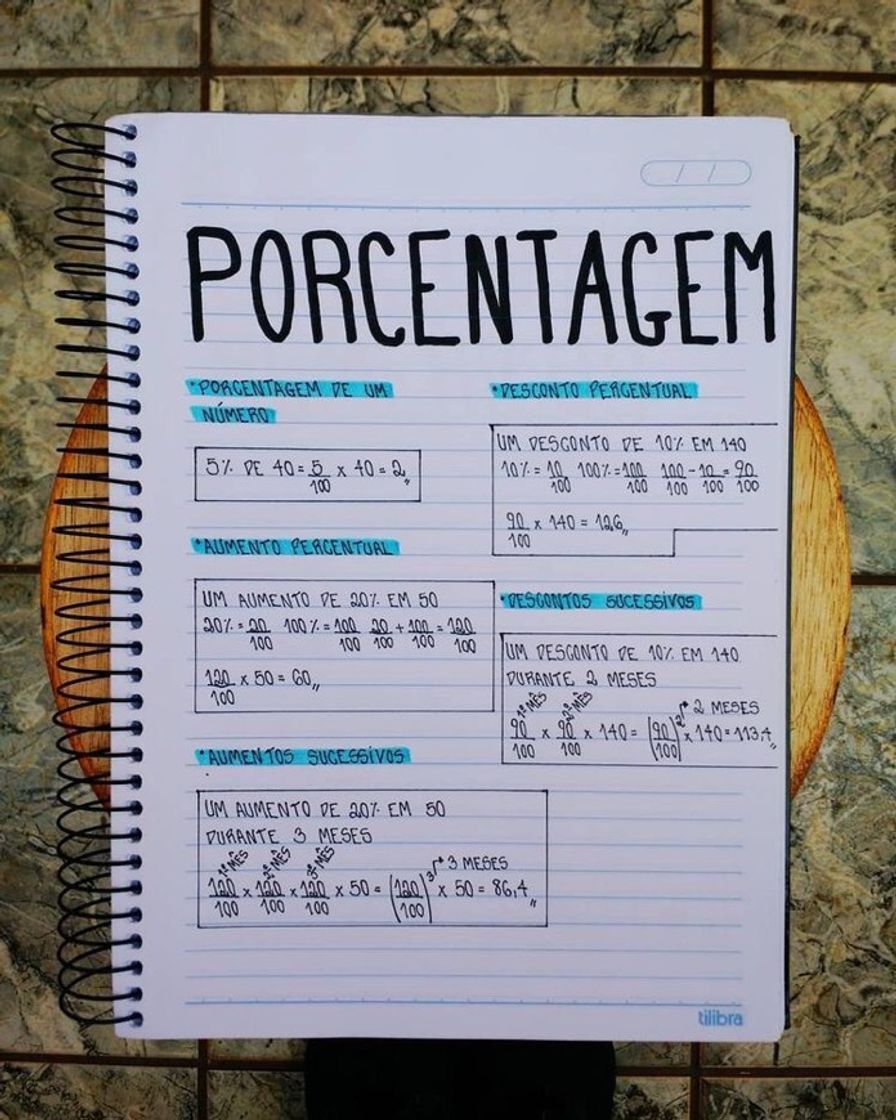 / /
PORCENTAGEM
•PORCENTAGEM DE UM
NÚMERO
5% DE 40 = 5/100 x 40 = 2,,
•AUMENTO PERCENTUAL
UM AUMENTO DE 20% EM 50
20% = 20/100 100% = 100/100 20/100 + 100/100 = 120/100
120/100 x 50 = 60,,
•AUMENTOS SUCESSIVOS
UM AUMENTO DE 20% EM 50
DURANTE 3 MESES
1º MÊS 2º MÊS 3º MÊS 3 MESES
120/100 x 120/100 x 120/100 x 50 = (120/100)³ x 50 = 86,4,,
•DESCONTO PERCENTUAL
UM DESCONTO DE 10% EM 140
10% = 10/100 100% = 100/100 100/100 - 10/100 = 90/100
90/100 x 140 = 126,,
•DESCONTOS SUCESSIVOS
UM DESCONTO DE 10% EM 140
DURANTE 2 MESES
1º MÊS 2º MÊS 2 MESES
90/100 x 90/100 x 140 = (90/100)² x 140 = 113,4,,
tilibra